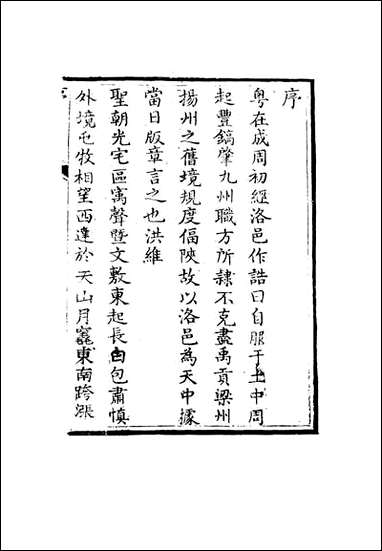 序
粤在成周初經洛邑作誥曰自服于土中周
起豐鎬肇九州職方所隷不克盡禹貢梁州
揚州之舊境規度偪陜故以洛邑為天中據
當日版章言之也洪維
聖朝光宅區寓聲暨文敷東起長白包肅慎
外境屯牧相望西達於天山月竁東南跨漲